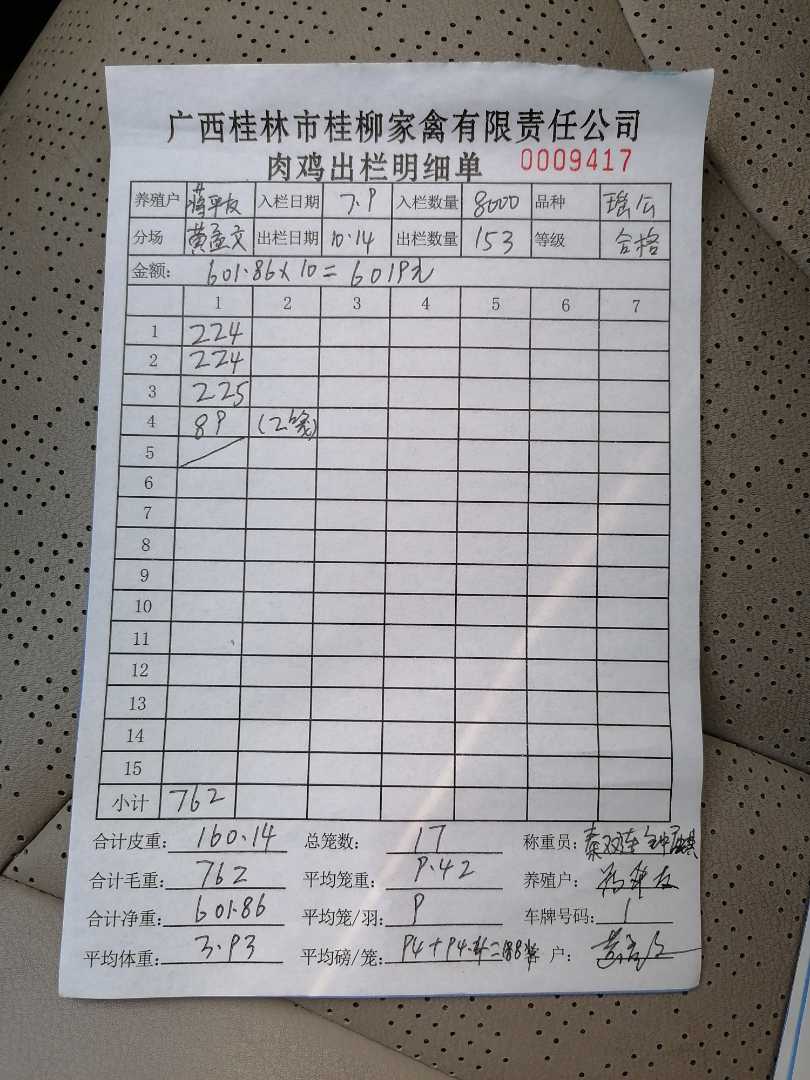 广西桂林市桂柳家禽有限责任公司
肉鸡出栏明细单 0009417
养殖户 蒋平友 入栏日期 7.9 入栏数量 8000 品种 瑶公
分场 黄孟文 出栏日期 10.14 出栏数量 153 等级 合格
金额: 601.86×10=6019元
1 2 3 4 5 6 7
1 224
2 224
3 225
4 89 (2笼)
5
6
7
8
9
10
11
12
13
14
15
小计 762
合计皮重: 160.14 总笼数: 17 称重员:
合计毛重: 762 平均笼重: 9.42 养殖户:
合计净重: 601.86 平均笼/羽: 9 车牌号码: 1
平均体重: 3.93 平均磅/笼: 户: